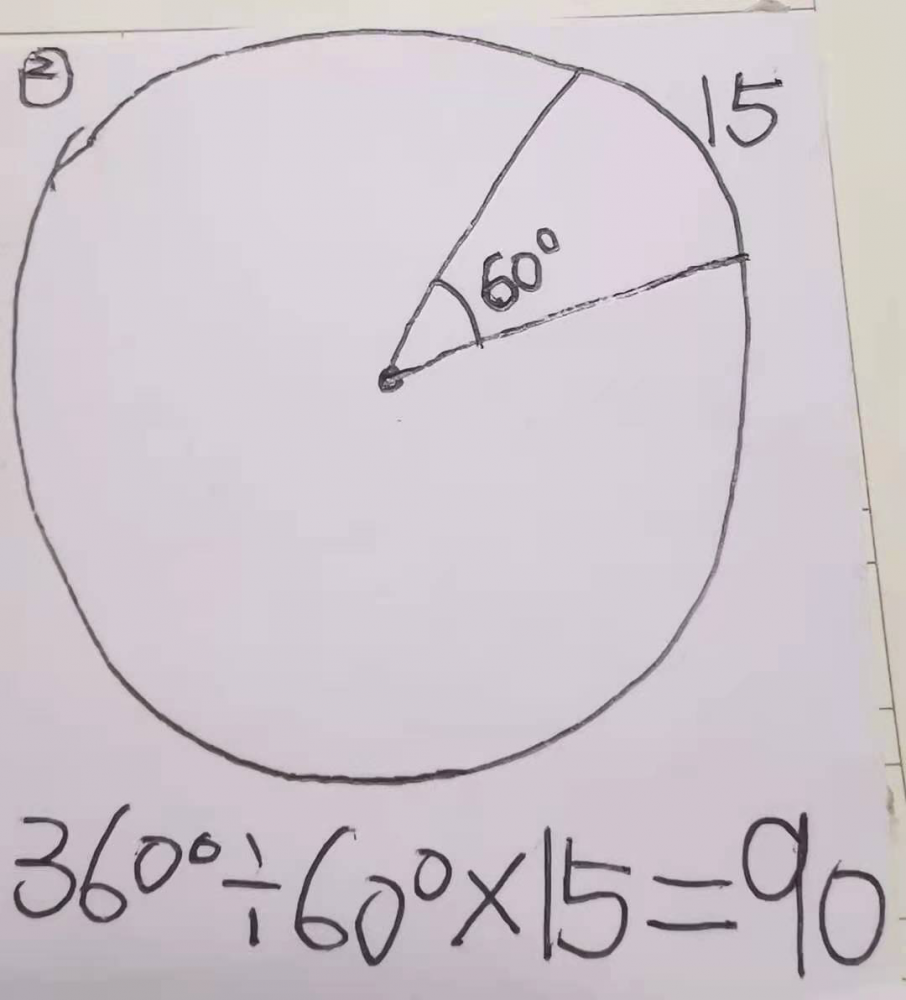 ②
15
60°
360°÷60°×15=90